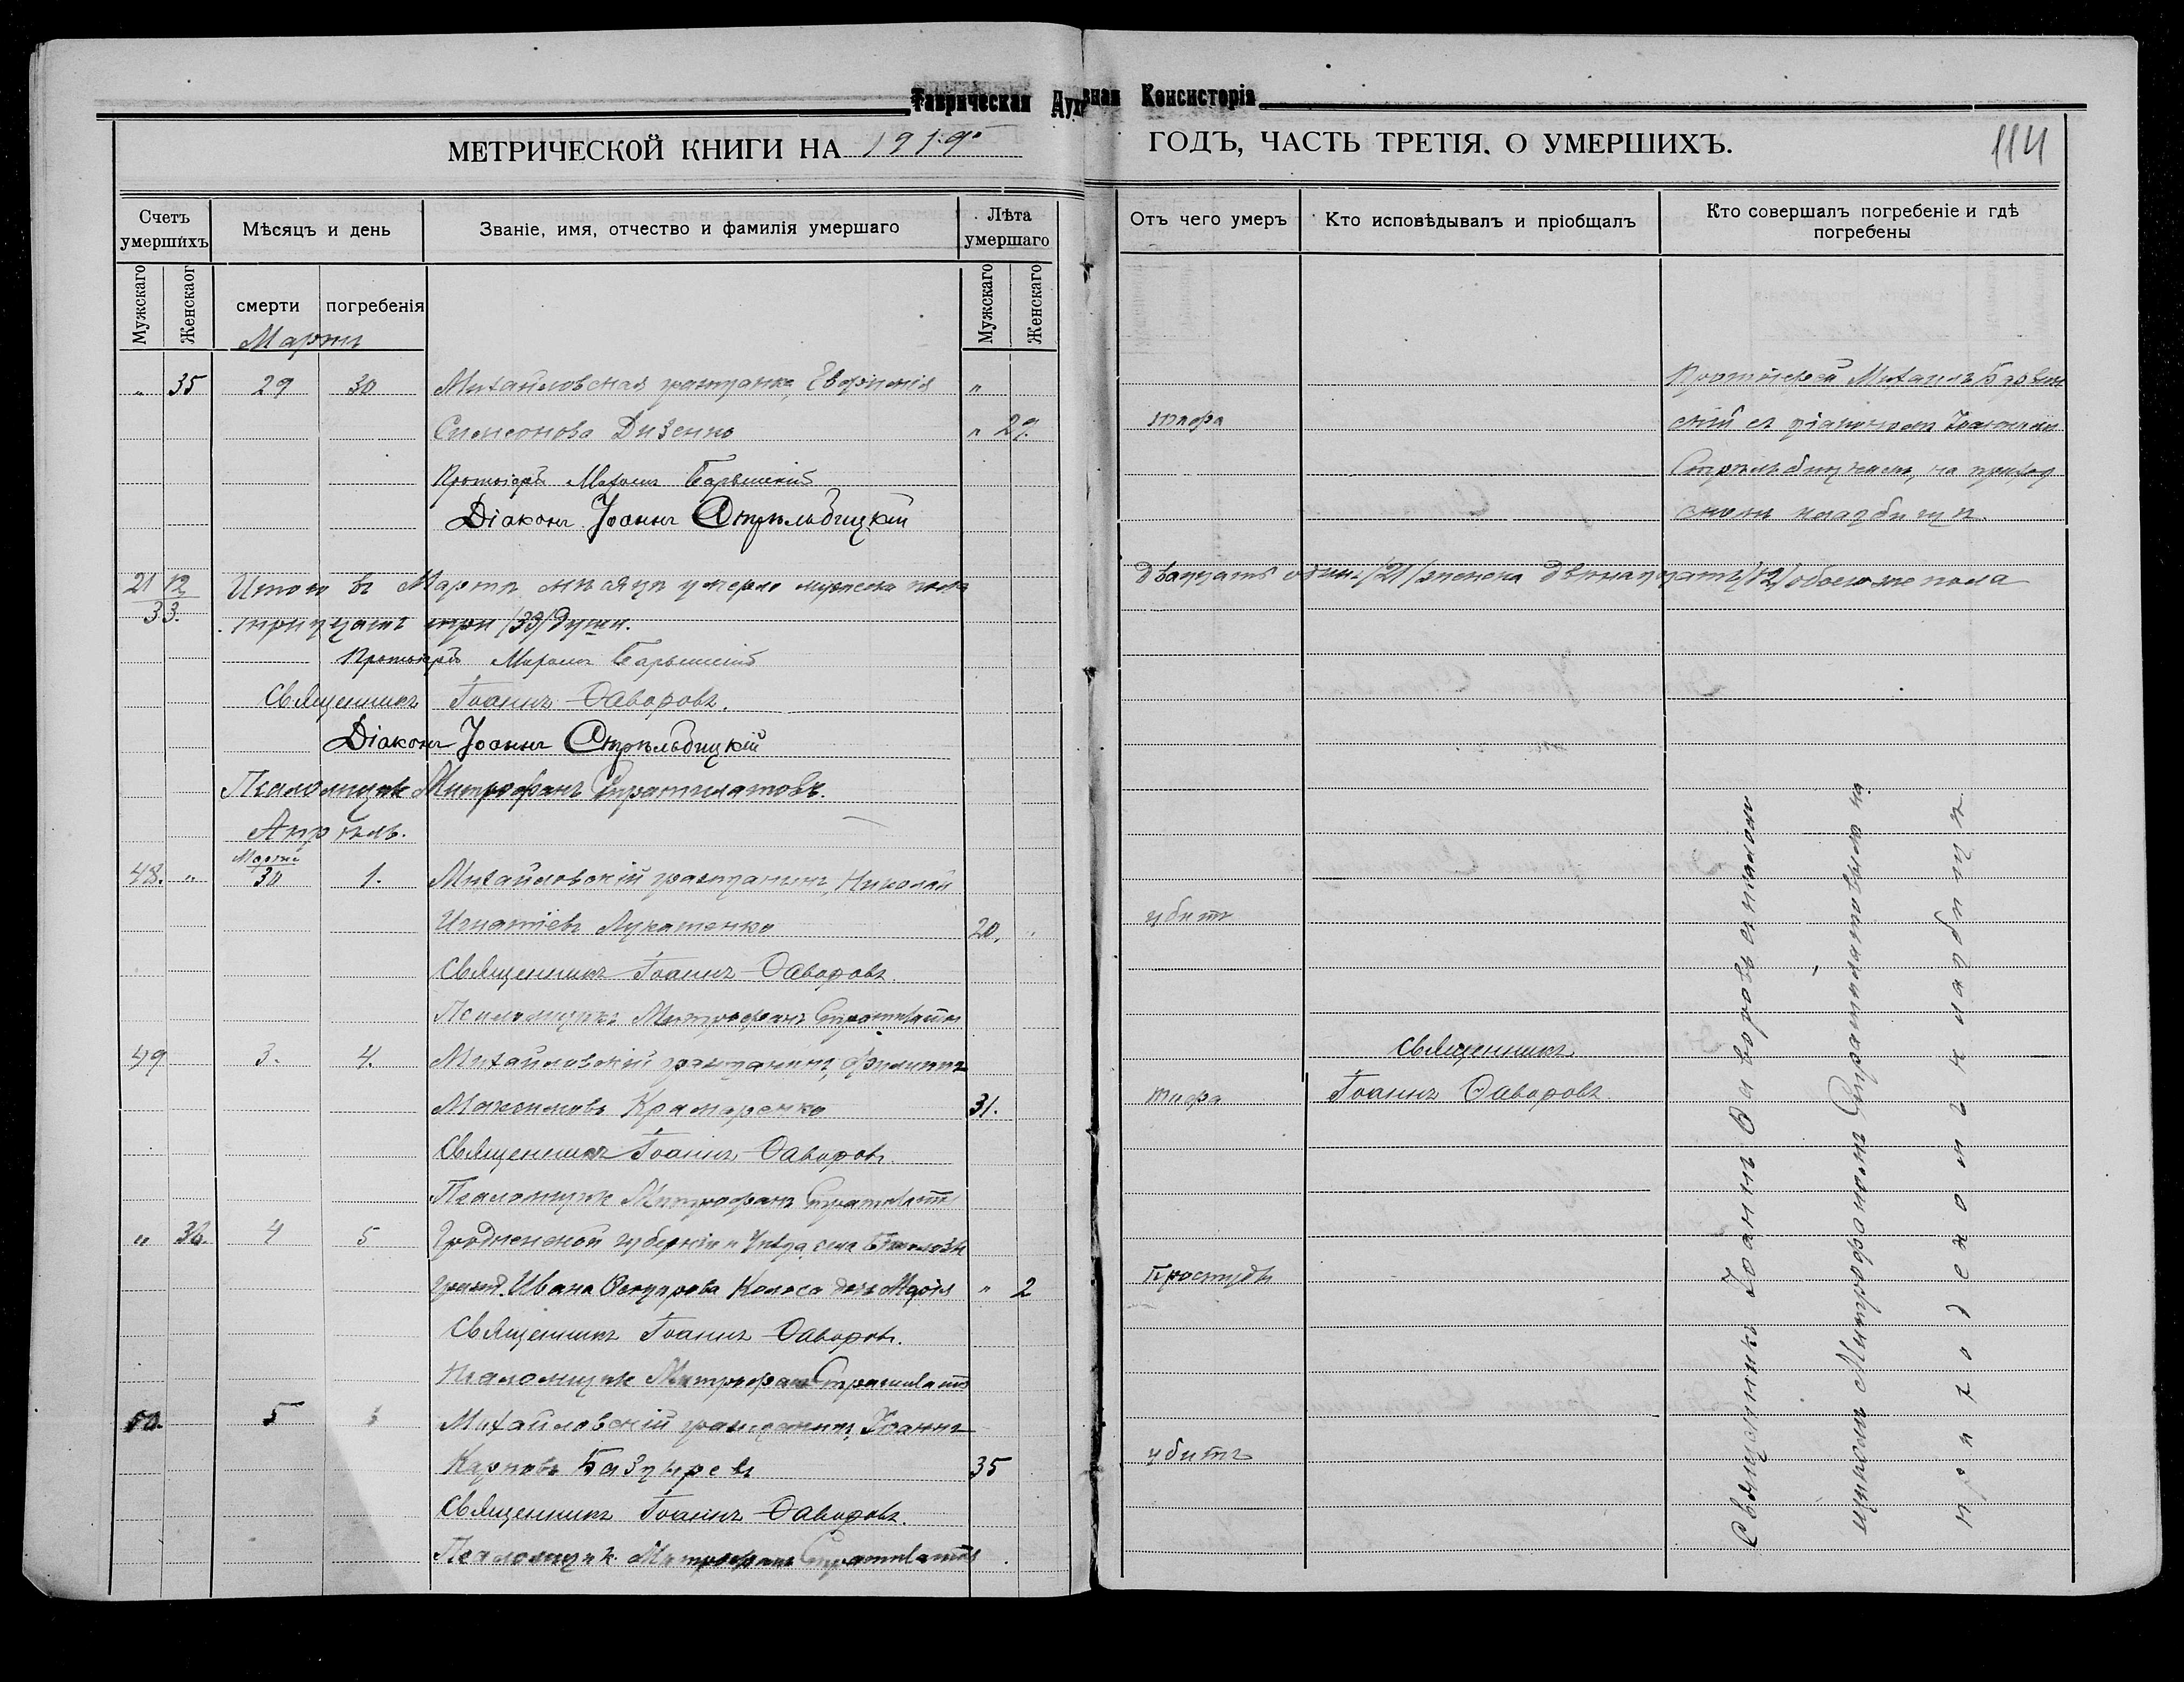 Таврическая Духовная Консисторія
МЕТРИЧЕСКОЙ КНИГИ НА 1919
ГОДЪ, ЧАСТЬ ТРЕТІЯ. О УМЕРШИХЪ.
114
Счетъ умершихъ
Мѣсяцъ и день
Званіе, имя, отчество и фамилія умершаго
Лѣта умершаго
Отъ чего умеръ
Кто исповѣдывалъ и пріобщалъ
Кто совершалъ погребеніе и гдѣ погребены
Мужскаго
Женскаог
смерти
погребенія
Мужскаго
Женскаго
Мартъ
" 35 29 30 Михайловская гражданка, Евфимія "
Протоіерей Михаилъ
Симеонова Дизенко " 29.
тифа
скій съ діакономъ Іоанномъ
Протоіерей Михаилъ
Стрѣльбицкимъ, на приход
Діаконъ Іоаннъ Стрѣльбицкій
скомъ кладбищѣ.
21 12 Итого въ Мартѣ мѣсяцѣ умерло мужеска пола двадцать одинъ /21/ женска двѣнадцать /12/ обоего же пола
33. тридцать три /33/ души.
Протоіерей Михаилъ
Священникъ Іоаннъ Ѳаворовъ.
Діаконъ Іоаннъ Стрѣльбицкій
Псаломщикъ Митрофанъ Стратилатовъ.
Апрѣль.
Марта
48. " 30 1. Михайловскій гражданинъ, Николай
Игнатіевъ Лукашенко 20. "
убитъ
Священникъ Іоаннъ Ѳаворовъ
Псаломщикъ Митрофанъ Стратилатовъ
49 3. 4. Михайловскій гражданинъ, Филиппъ
Священникъ
Максимовъ Крамаренко 31.
тифа
Іоаннъ Ѳаворовъ
Священникъ Іоаннъ Ѳаворовъ.
Псаломщикъ Митрофанъ Стратилатовъ
" 36. 4 5 Гродненской губерніи и Уѣзда села
гражд. Ивана Колоса дочь Марія " 2
простуды
Священникъ Іоаннъ Ѳаворовъ.
Псаломщикъ Митрофанъ Стратилатовъ
50. 5 Михайловскій гражданинъ, Іоаннъ
Карповъ 35
убитъ
Священникъ Іоаннъ Ѳаворовъ.
Псаломщикъ Митрофанъ Стратилатовъ
Священникъ Іоаннъ Ѳаворовъ съ псалом
щикомъ Митрофаномъ Стратилатовымъ на
приходскомъ кладбищѣ